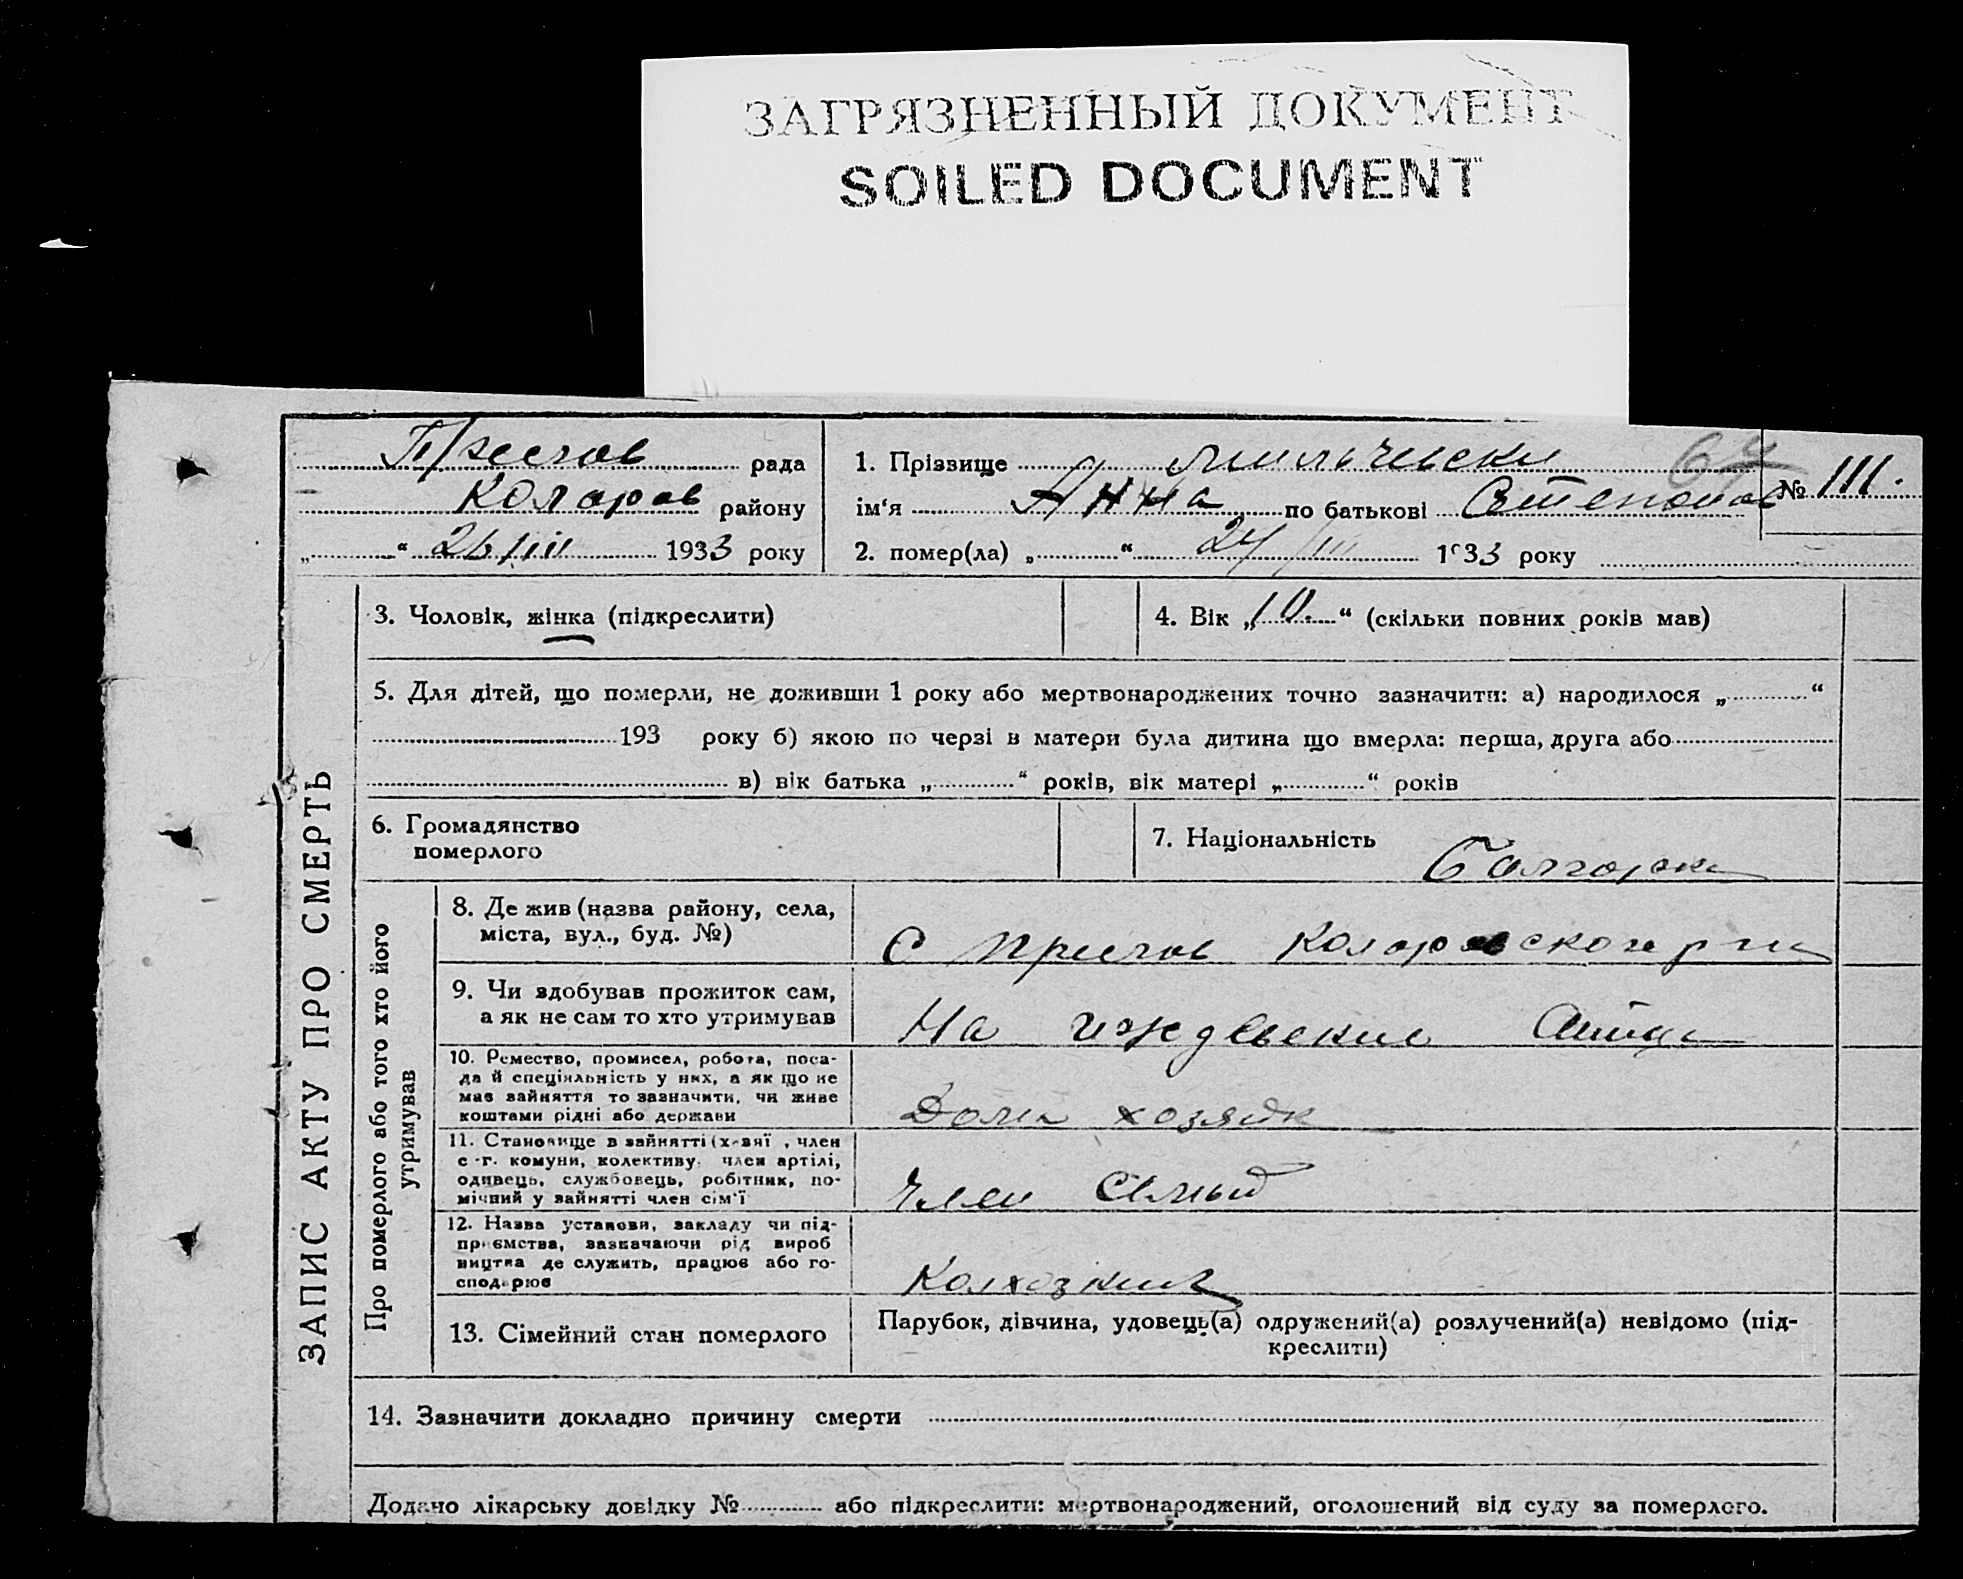 ЗАГРЯЗНЕННЫЙ ДОКУМЕНТ
SOILED DOCUMENT
ЗАПИС АКТУ ПРО СМЕРТЬ
Преслав рада
Коларов району
„ “ 26/III 1933 року
1. Прізвище
64
№ 111.
ім‘я Анна по батькові Степанов
2. помер(ла) „ “ 24/III 1933 року
3. Чоловік, жінка (підкреслити)
4. Вік „10.“ (скільки повних років мав)
5. Для дітей, що померли, не доживши 1 року або мертвонароджених точно зазначити: а) народилося „ “
193 року б) якою по черзі в матери була дитина що вмерла: перша, друга або
в) вік батька „ “ років, вік матері „ “ років
6. Громадянство
померлого
7. Національність Болгарск
Про померлого або того хто його
утримував
8. Де жив (назва району, села,
міста, вул., буд. №)
С Прислав Коларовского р на
9. Чи здобував прожиток сам,
а як не сам то хто утримував
На иждевении Отца
10. Ремество, промисел, робота, поса-
да й спеціяльність у них, а як що не
мав зайняття то зазначити, чи живе
коштами рідні або держави
Дома хозяйк
11. Становище в зайнятті (х-вяї , член
с-г. комуни, колективу, член артілі,
одивець, службовець, робітник, по-
мічний у зайнятті член сім'ї
Член семьи
12. Назва установи, закладу чи під-
приємства, зазначаючи рід вироб
ництва де служить, працює або го-
сподарює
Колхозник
13. Сімейний стан померлого
Парубок, дівчина, удовець(а) одружений(а) розлучений(а) невідомо (під-
креслити)
14. Зазначити докладно причину смерти
Додано лікарську довідку № або підкреслити: мертвонароджений, оголошений від суду за померлого.